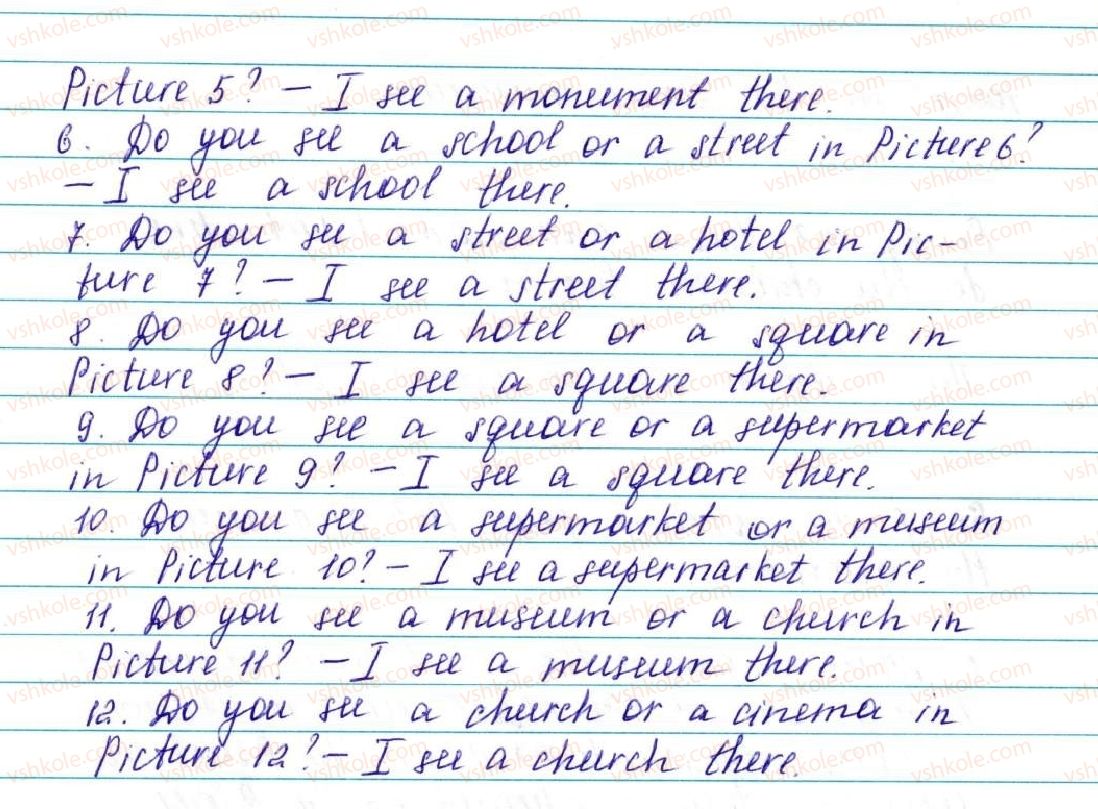 Picture 5? – I see a monument there.
6. Do you see a school or a street in Picture 6?
– I see a school there.
7. Do you see a street or a hotel in Pic-
ture 7? – I see a street there.
8. Do you see a hotel or a square in
Picture 8? – I see a square there.
9. Do you see a square or a supermarket
in Picture 9? – I see a square there.
10. Do you see a supermarket or a museum
in Picture 10? – I see a supermarket there.
11. Do you see a museum or a church in
Picture 11? – I see a museum there.
12. Do you see a church or a cinema in
Picture 12? – I see a church there.